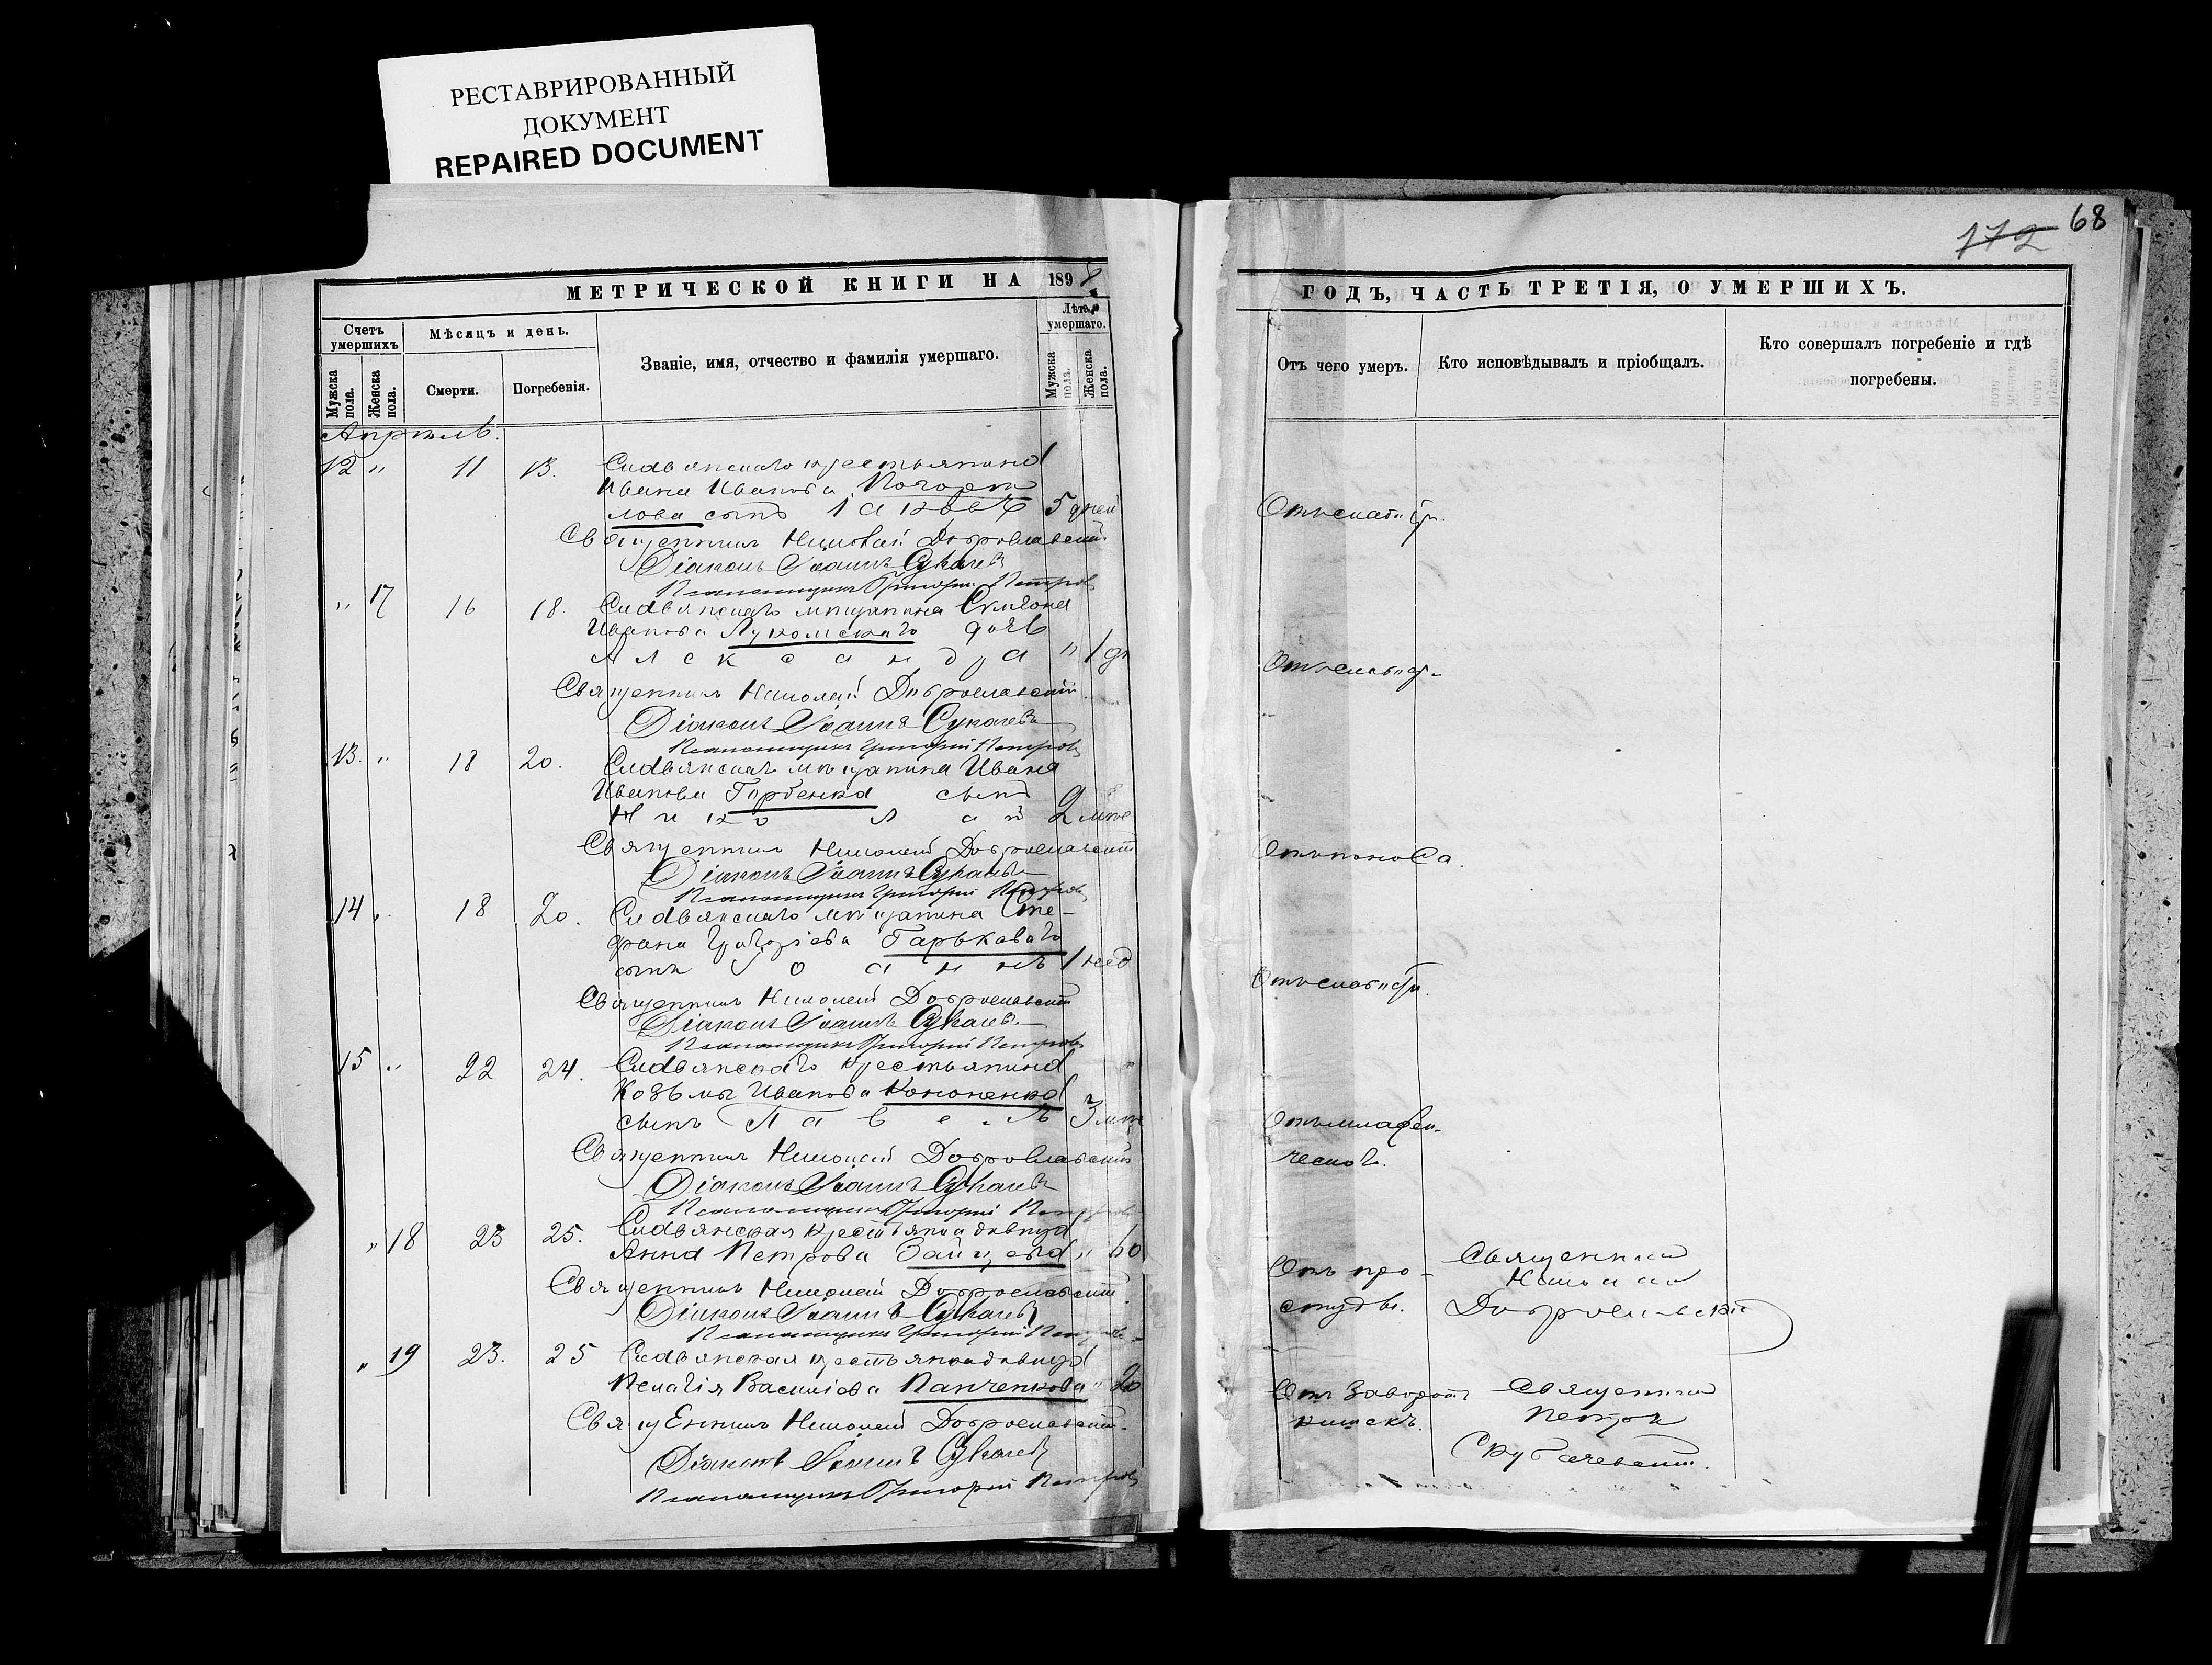 РЕСТАВРИРОВАННЫЙ
ДОКУМЕНТ
REPAIRED DOCUMENT
172 68
МЕТРИЧЕСКОЙ КНИГИ НА 1898
ГОДЪ, ЧАСТЬ ТРЕТІЯ, О УМЕРШИХЪ.
Счетъ умершихъ
Мужска пола.
Женска пола.
Мѣсяцъ и день.
Смерти.
Погребенія.
Званіе, имя, отчество и фамилія умершаго.
Лѣта умершаго.
Мужска пола.
Женска пола.
Отъ чего умеръ.
Кто исповѣдывалъ и пріобщалъ.
Кто совершалъ погребеніе и гдѣ
погребены.
Апрель.
12 " 11 13. Славянскаго крестьянина
Ивана Иванова
лова сынъ Іаковъ 5 дней
Священникъ Николай Доброславскій
Діаконъ Іоаннъ Сукачевъ
Псаломщикъ Григорій Петровъ
" 17 16 18. Славянскаго мѣщанина Симеона
Иванова Лукомскаго дочь
Александра " 1 дн
Священникъ Николай Доброславскій
Діаконъ Іоаннъ Сукачевъ
Псаломщикъ Григорій Петровъ
13. " 18 20. Славянскаго мѣщанина Ивана
Иванова Горбенко сынъ
Николай 2
Отъ поноса.
Священникъ Николай Доброславскій
Діаконъ Іоаннъ Сукачевъ
Псаломщикъ Григорій Петровъ
14 " 18 20. Славянскаго мѣщанина Сте-
фана Григоріева Гарьковаго
сынъ Іоаннъ 1 нед
Священникъ Николай Доброславскій
Діаконъ Іоаннъ Сукачевъ
Псаломщикъ Григорій Петровъ
15 " 22 24. Славянскаго крестьянина
Козьмы Иванова Кононенко
сынъ Павелъ 3
Отъ младен-
ческой.
Священникъ Николай Доброславскій
Діаконъ Іоаннъ Сукачевъ
Псаломщикъ Григорій
" 18 23 25. Славянская крестьянка девица
Анна Петрова Зайцева " 60
Отъ про-
студы.
Священникъ
Николай
Доброславскій
Священникъ Николай Доброславскій
Діаконъ Іоаннъ Сукачевъ
Псаломщикъ Григорій
" 19 23. 25 Славянская крестьянка девица
Пелагія Василіева Панченкова " 20
Отъ заворота
кишекъ.
Священникъ
Петръ
Священникъ Николай Доброславскій
Діаконъ Іоаннъ Сукачевъ
Псаломщикъ Григорій Петровъ